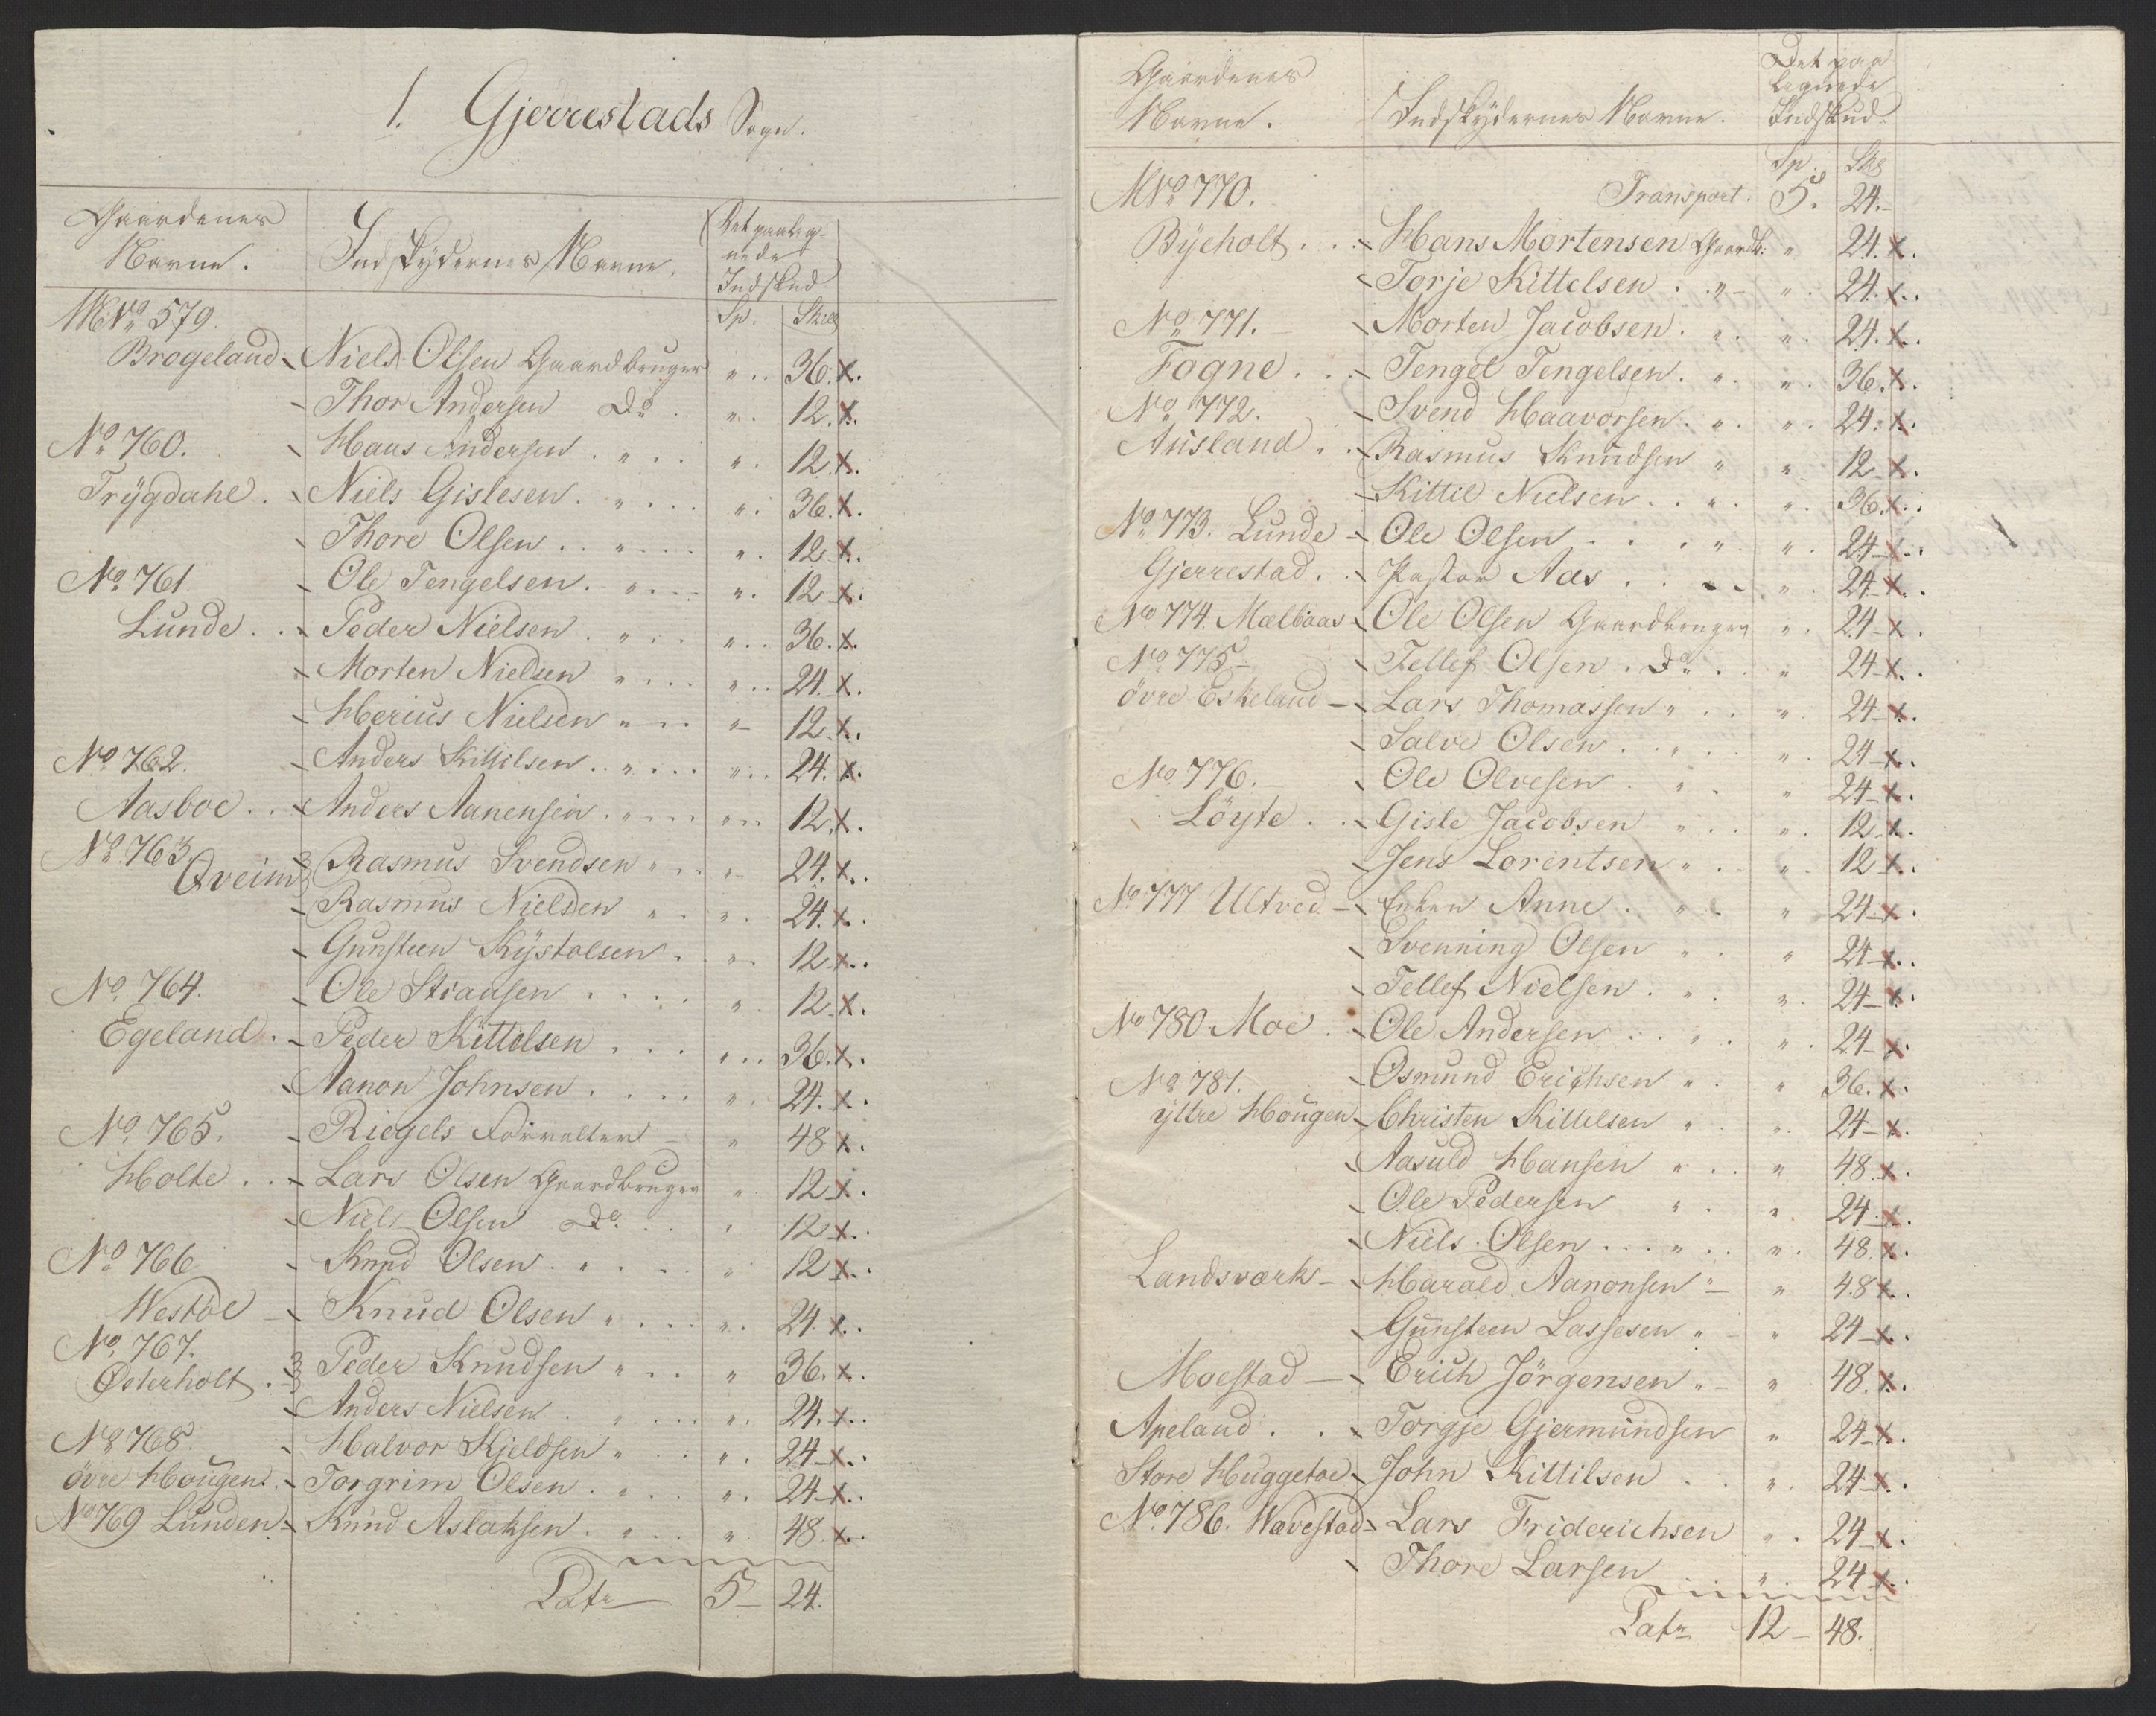 1. Gjerrestads Sogn.
Gaardenes Navne. Indskydernes Navne. Det paalig- nede Indskud
Sp. Skill
MNo 579.
Brogeland Niels Olsen Gaardbruger " 36. x.
Thor Andersen Do " 12. x.
No 760. Hans Andersen " " 12. x.
Trÿgdahl. Niels Gislesen. " " 36. x.
Thore Olsen " " 12. x.
No 761 Ole Tengelsen. " " 12 x.
Lunde. Peder Nielsen. " " 36. x.
Morten Nielsen " " 24. x.
Herius Nielsen " " 12. x.
No 762. Anders Kittilsen " " 24. x.
Aasboe. Anders Aanensen " " 12. x.
No 763
Qveim Rasmus Svendsen " " 24. x.
Rasmus Nielsen " " 24. x.
Gunsteen Kÿstolsen. " 12. x.
No 764. Ole Stiansen " 12. x.
Egeland. Peder Kittelsen " 36. x.
Aanon Johnsen " 24. x.
No 765. Riegels Forvalter " 48 x.
Holte. Lars Olsen Gaardbruger " 12 x.
Niels Olsen Do " 12 x.
No 766 Knud Olsen. " " 12 x.
Westöl Knud Olsen " " 24. x.
No 767.
Østerholt. Peder Knudsen " " 36. x.
Anders Nielsen " " 24. x.
No 768. Halvor Kjeldsen " " 24 x.
övre Hougen. Torgrim Olsen. " " 24 x.
No 769 Lunden Knud Aslaksen. " " 48. x.
Latr 5 24.
Gaardenes Navne. Indskydernes Navne. Det paa lignede Indskud.
Sp. Sk
MNo 770. Transport. 5. 24.
Bÿeholt. Hans Mortensen Gaardb: " 24. x.
Torje Kittelsen. " " 24. x.
No 771. Morten Jacobsen. " " 24. x.
Fogne. Tengel Tengelsen. " " 36. x.
No 772. Svend Haavorsen. " " 24. x.
Ausland Rasmus Knudsen " " 12 x.
Kittil Nielsen " " 36. x.
No 773. Lunde Ole Olsen " " 24 x.
Gjerrestad. Pastor Aas " 24 x.
No 774. Mælbaas Ole Olsen Gaardbruger " 24 x.
No 775 Tellef Olsen. Do " 24 x.
övre Eskeland Lars Thomassen " " 24 x.
Salve Olsen " " 24 x.
No 776. Ole Olvesen " " 24 x.
Löyte Gisle Jacobsen " " 12 x.
Jens Lorentsen " " 12 x.
No 777 Ultved Enken Anne. " " 24 x.
Svenning Olsen " " 24 x.
Tellef Nielsen. " " 24 x.
No 780 Moe Ole Andersen " " 24 x.
No 781. Osmund Erichsen " " 36. x.
yttre Hougen Christen Kittelsen " " 24 x.
Aasuld Hansen " " 48 x.
Ole Pedersen " " 24 x.
Niels Olsen " " 48. x.
Landsværk Harald Aanonsen " " 48 x.
Gunsteen Lassesen " " 24 x.
Moestad Erich Jörgensen " " 48. x.
Apeland. Torgje Gjermundsen " 24 x.
Store Huggetoe John Kittilsen " 24 x.
No 786. Wævestad Lars Friderichsen " 24 x.
Thore Larsen " 24 x.
Latr 12 48.